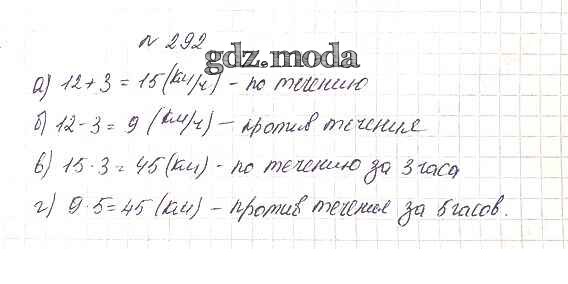 № 292
gdz.moda
а) 12 + 3 = 15 (км/ч) - по течению
б) 12 - 3 = 9 (км/ч) - против течения
в) 15 · 3 = 45 (км) - по течению за 3 часа
г) 9 · 5 = 45 (км) - против течения за 5 часов.